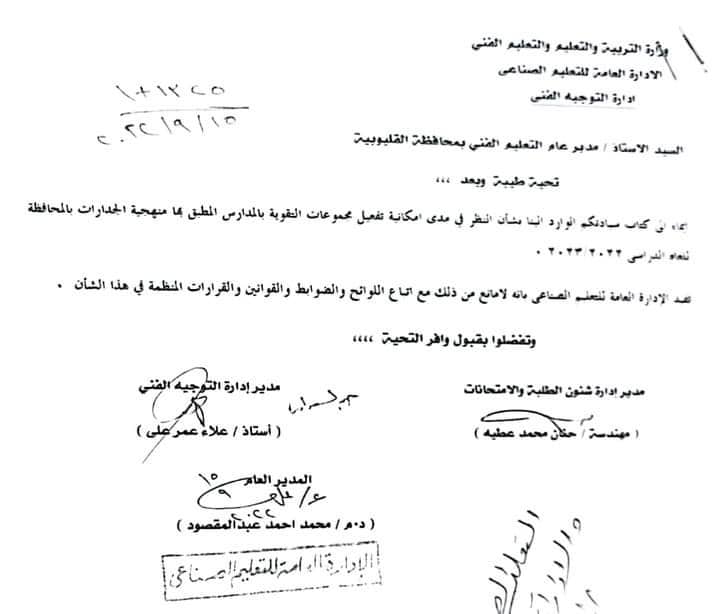 وزارة التربية والتعليم والتعليم الفني
الادارة العامة للتعليم الصناعى
ادارة التوجيه الفنى
٢٠٢٢/٩/١٥
السيد الاستاذ / مدير عام التعليم الفني بمحافظة القليوبية
تحية طيبة وبعد ،،،
إيماء الى كتاب سيادتكم الوارد الينا بشأن النظر في مدى امكانية تفعيل مجموعات التقوية بالمدارس المطبق بها منهجية الجدارات بالمحافظة
للعام الدراسى ٢٠٢٣/٢٠٢٢ .
تفيد الإدارة العامة للتعليم الصناعى بانه لامانع من ذلك مع اتباع اللوائح والضوابط والقوانين والقرارات المنظمة في هذا الشأن .
وتفضلوا بقبول وافر التحية ،،،،
مدير إدارة شئون الطلبة والامتحانات
مدير إدارة التوجيه الفني
( مهندسة / حنان محمد عطيه )
( أستاذ / علاء عمر على )
المدير العام
١٥
٩
٢٠٢٢
( د٠م / محمد احمد عبدالمقصود )
الإدارة العامة للتعليم الصناعى